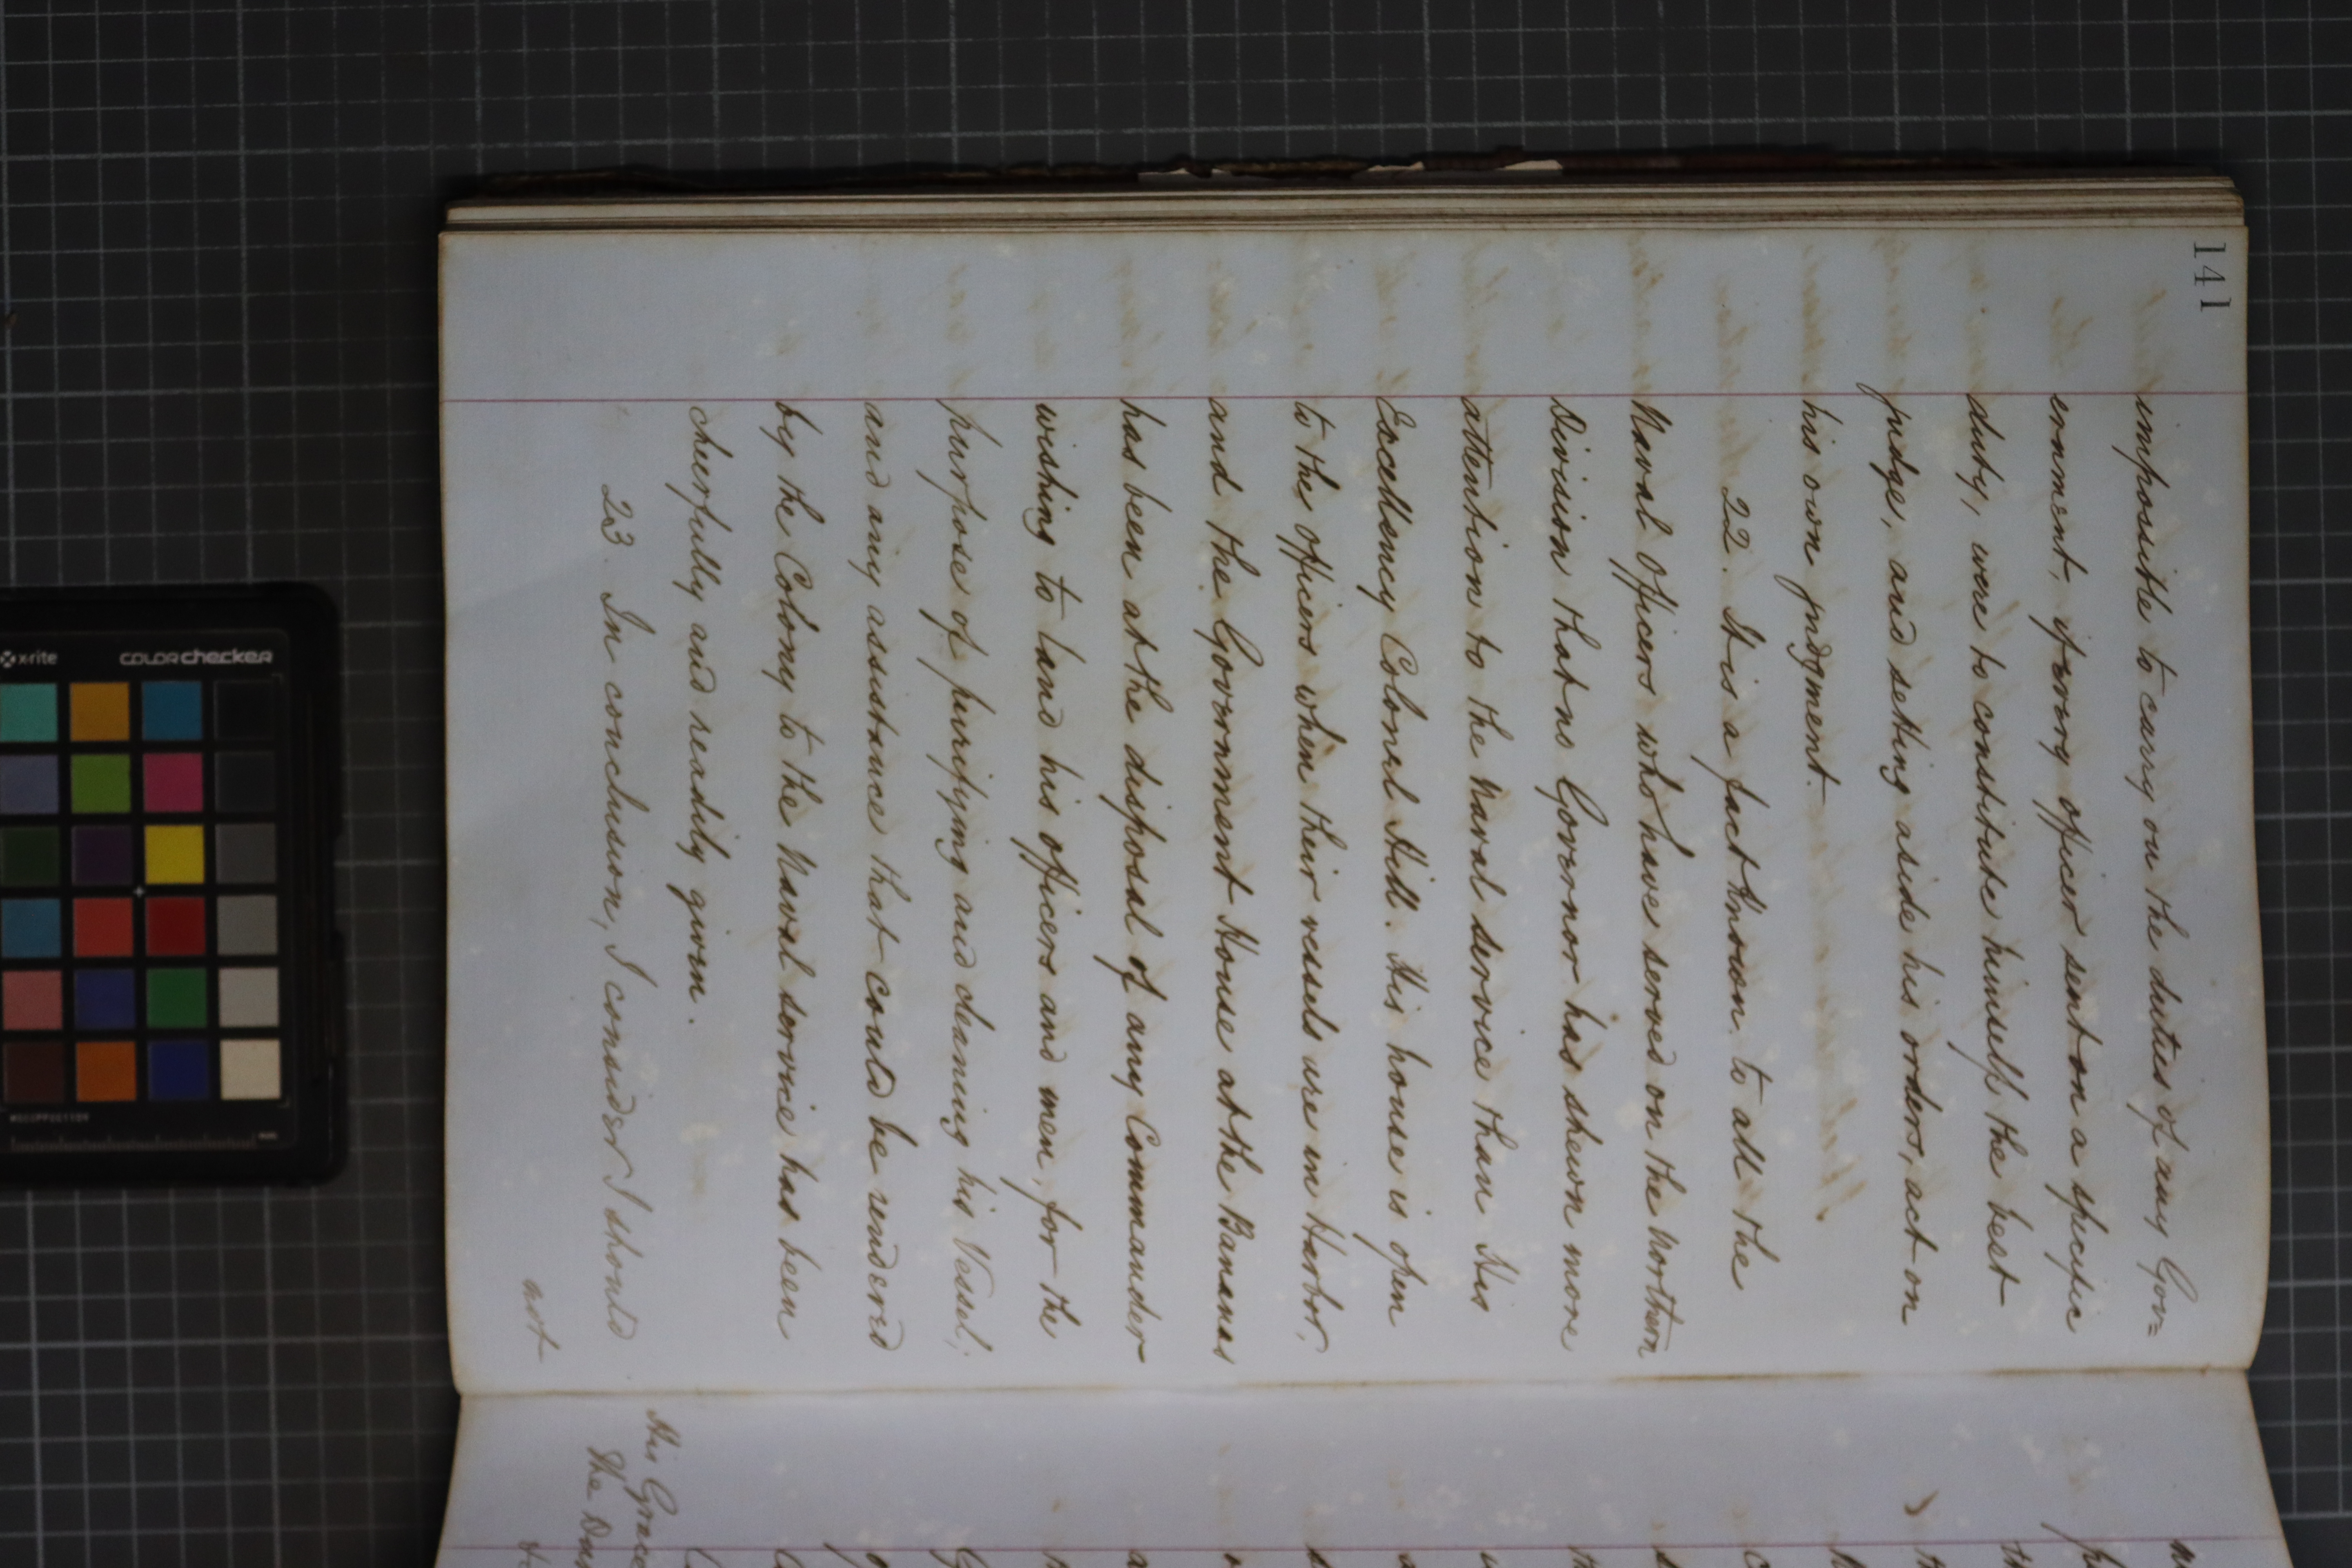 141
impossible to carry on the duties of any Gov=
ernment, if every officer sent on a specific
duty, were to constitute himself the best
judge, and setting aside his orders, act on
his own judgment.
22. It is a fact known to all the
Naval Officers who have served on the Northern
Division that no Governor has shewn more
attention to the Naval service than His
Excellency Colonel Hill. His house is open
to the officers when their vessels are in Harbor,
and the Government House at the Bananas
has been at the disposal of any Commander
wishing to land his officers and men, for the
purpose of purifying and cleaning his Vessel;
and any assistance that could be rendered
by the Colony to the Naval service has been
cheerfully and readily given.
23. In conclusion, I consider I should
not
His Grace
The
x-rite
colorchecker